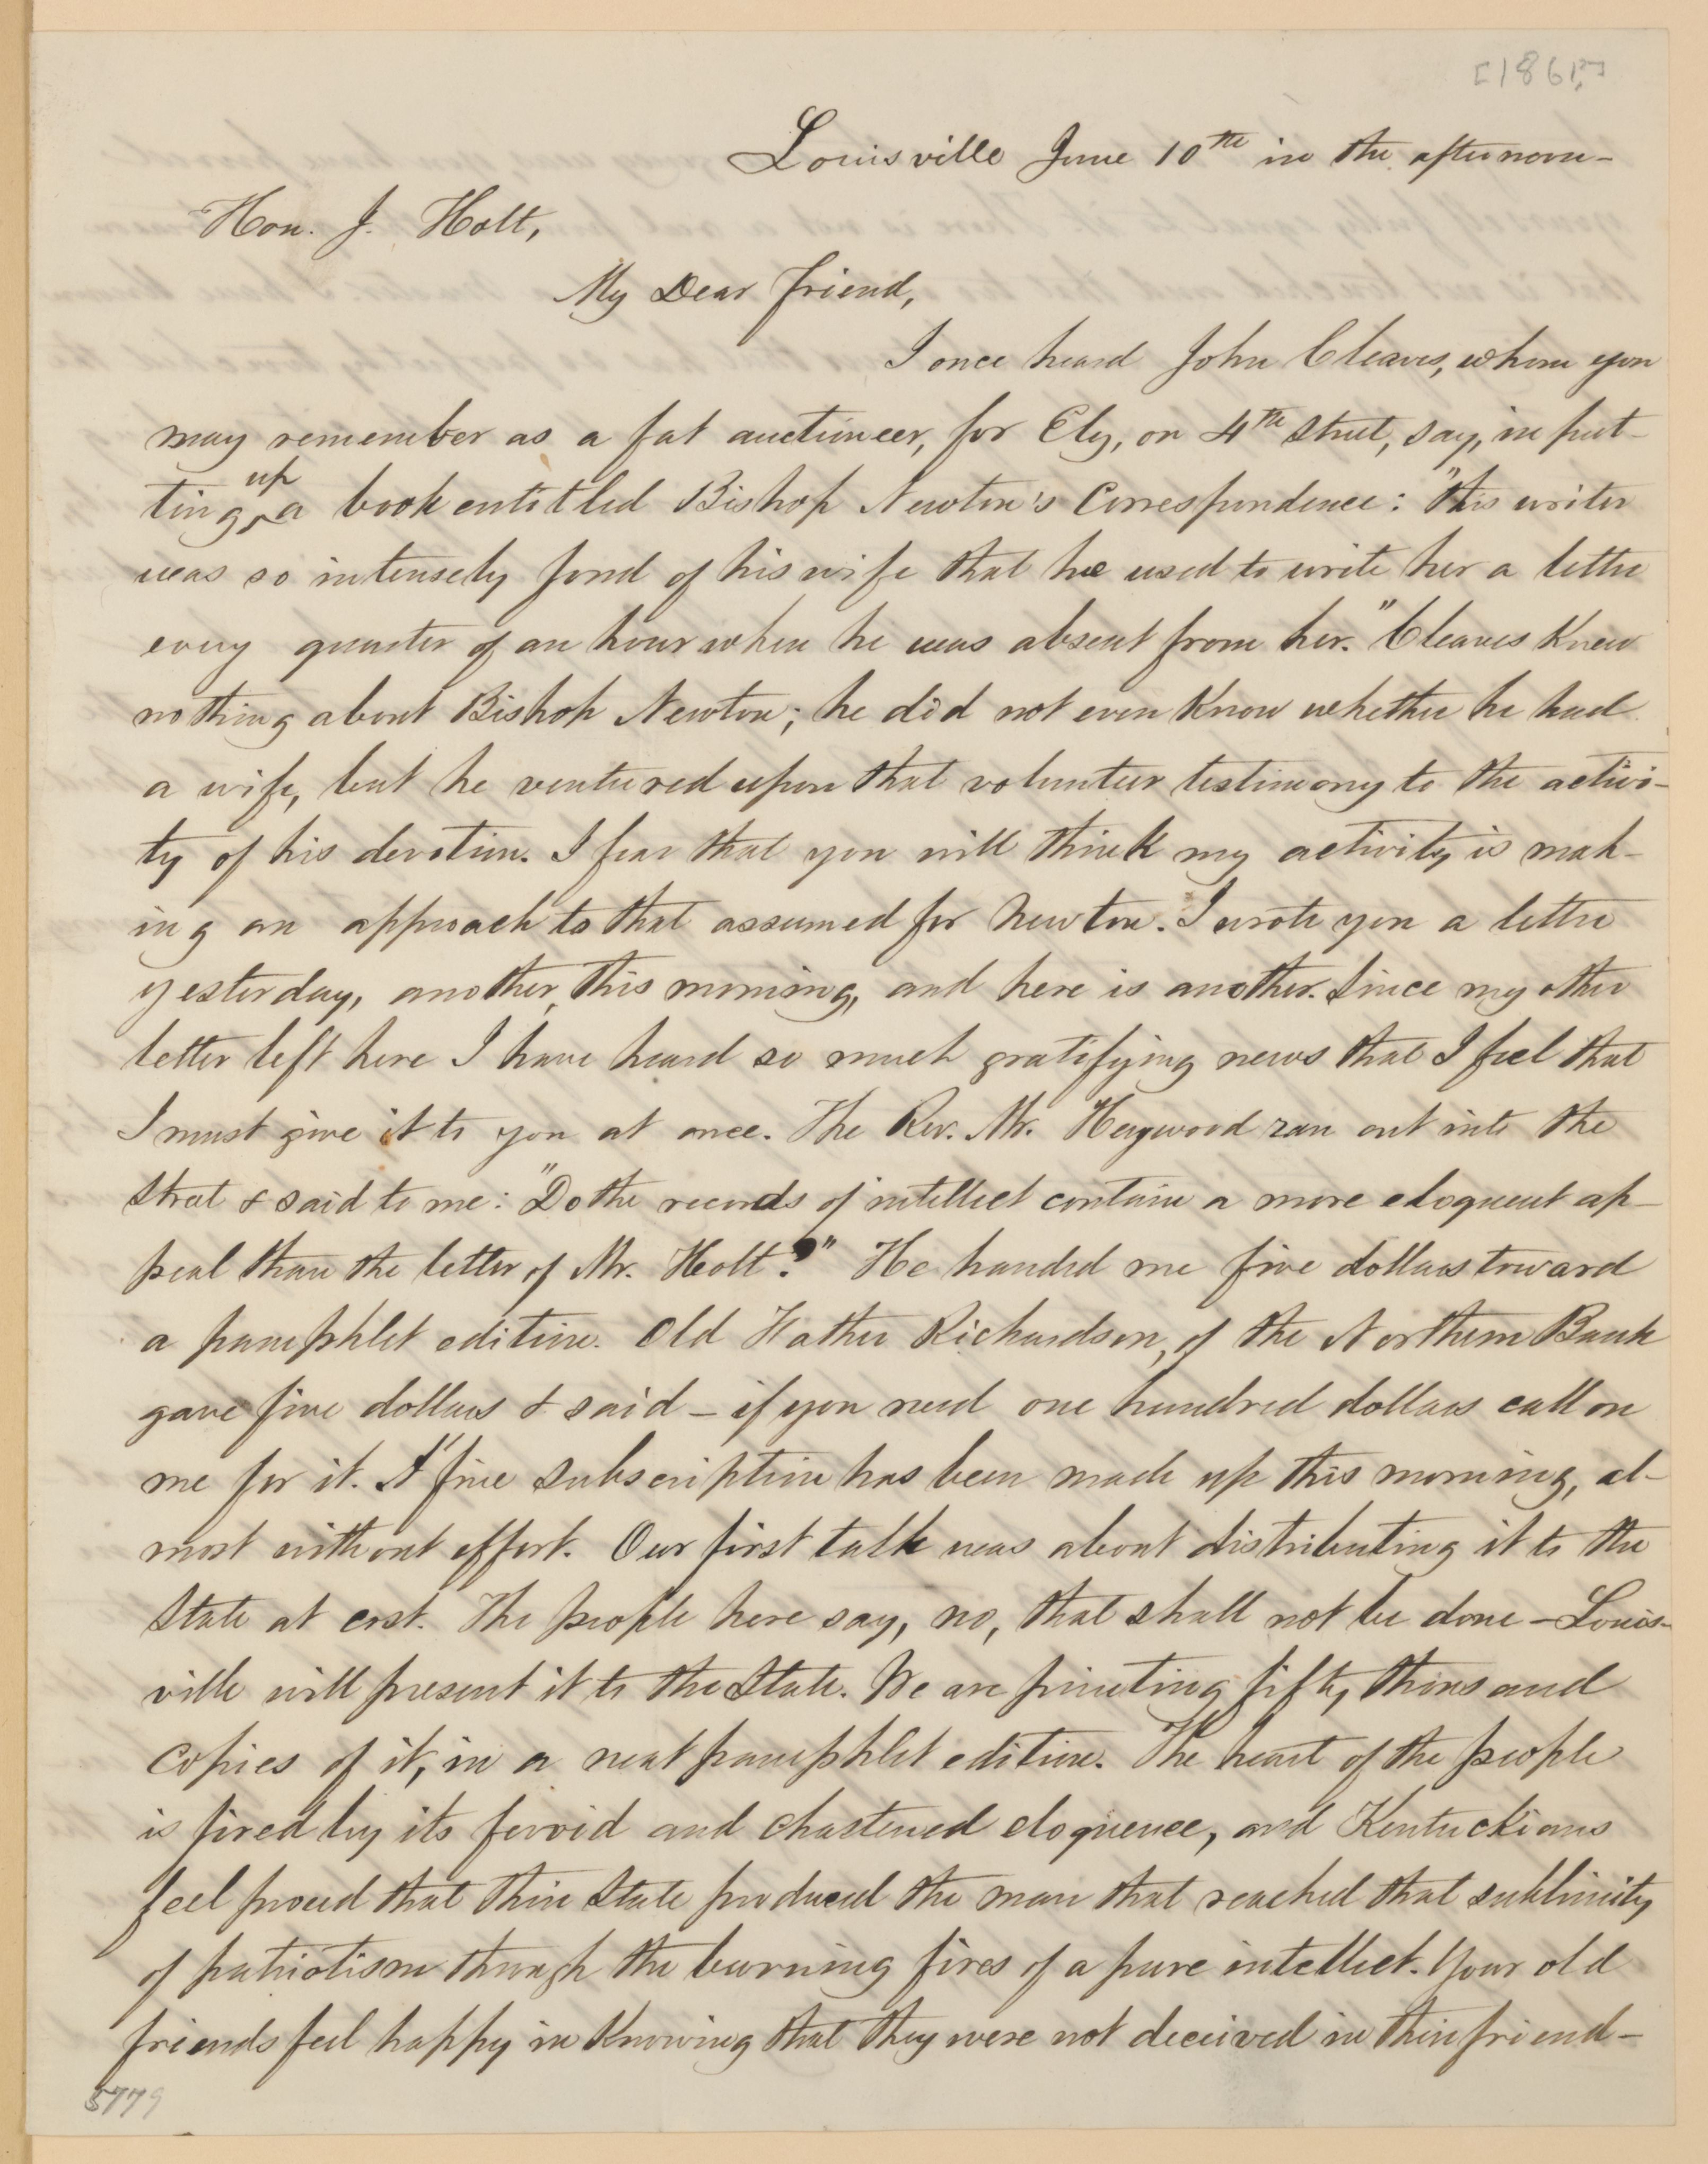 [1861?]
Louisville June 10th in the afternoon-
Hon. J. Holt,
My Dear friend,
I once heard John Cleaves, whom you
may remember as a fat auctioneer, for Ely, on 4th street, say, in put-
ting up a book entitled Bishop Newton's Correspondence: "this writer
was so intensely fond of his wife that he used to write her a letter
every quarter of an hour when he was absent from her." Cleaves knew
nothing about Bishop Newton; he did not even know whether he had
a wife, but he ventured upon that volunteer testimony to the activi-
ty of his devotion. I fear that you will think my activity is mak-
ing an approach to that assumed for Newton. I wrote you a letter
yesterday, another, this morning, and here is another. Since my other
letter left here I have heard so much gratifying news that I feel that
I must give it to you at once. The Rev. Mr. Heywood ran out into the
street & said to me: "Do the records of intellect contain a more eloquent ap-
peal than the letter of Mr. Holt?" He handed me five dollars toward
a pamphlet edition. Old Father Richardson, of the Northern Bank
gave five dollars & said - if you need one hundred dollars call on
me for it." A fine subscription has been made up this morning, al-
most without effort. Our first talk was about distributing it to the
State at cost. The people here say, no, that shall not be done - Louis-
ville will present it to the State. We are printing fifty thousand
copies of it, in a neat pamphlet edition. The heart of the people
is fired by its fervid and chastened eloquence, and Kentuckians
feel proud that their State produced the man that reached that sublimity
of patriotism through the burning fires of a pure intellect. Your old
friends feel happy in knowing that they were not deceived in their friend-
5779